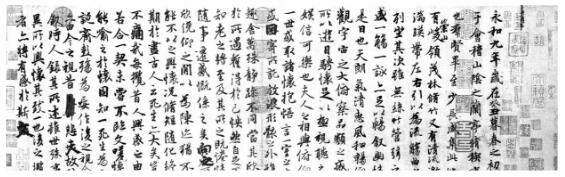 永和九年歲在癸丑暮春之初
于會稽山陰之蘭亭脩稧
也群賢畢至少長咸集此
有崇山峻領茂林脩竹又有清流激
湍暎帶左右引以為流觴曲
列坐其次雖無絲竹管弦
盛一觴一詠亦足以暢敘幽情
是日也天朗氣清惠風和暢仰
觀宇宙之大俯察品類之盛
所以遊目騁懷足以極視聽之
娛信可樂也夫人之相與俯仰
一世或取諸懷抱悟言一室之
或因寄所託放浪形骸之外雖
趣舍萬殊靜躁不同當其欣
於所遇蹔得於己怏然自足不
知老之將至及其所之既惓情
隨事遷感慨係之矣向之
欣俛仰之間以為陳迹猶不
能不以之興懷況脩短隨化終
期於盡古人云死生亦大矣豈
不痛哉每攬昔人興感之由
若合一契未嘗不臨文嗟悼
能喻之於懷固知一死生為
誕齊彭殤為妄作後之視今
今之視昔悲夫故
敘時人錄其所述雖世殊事
異所以興懷其致一也後之攬
者亦將有感於斯